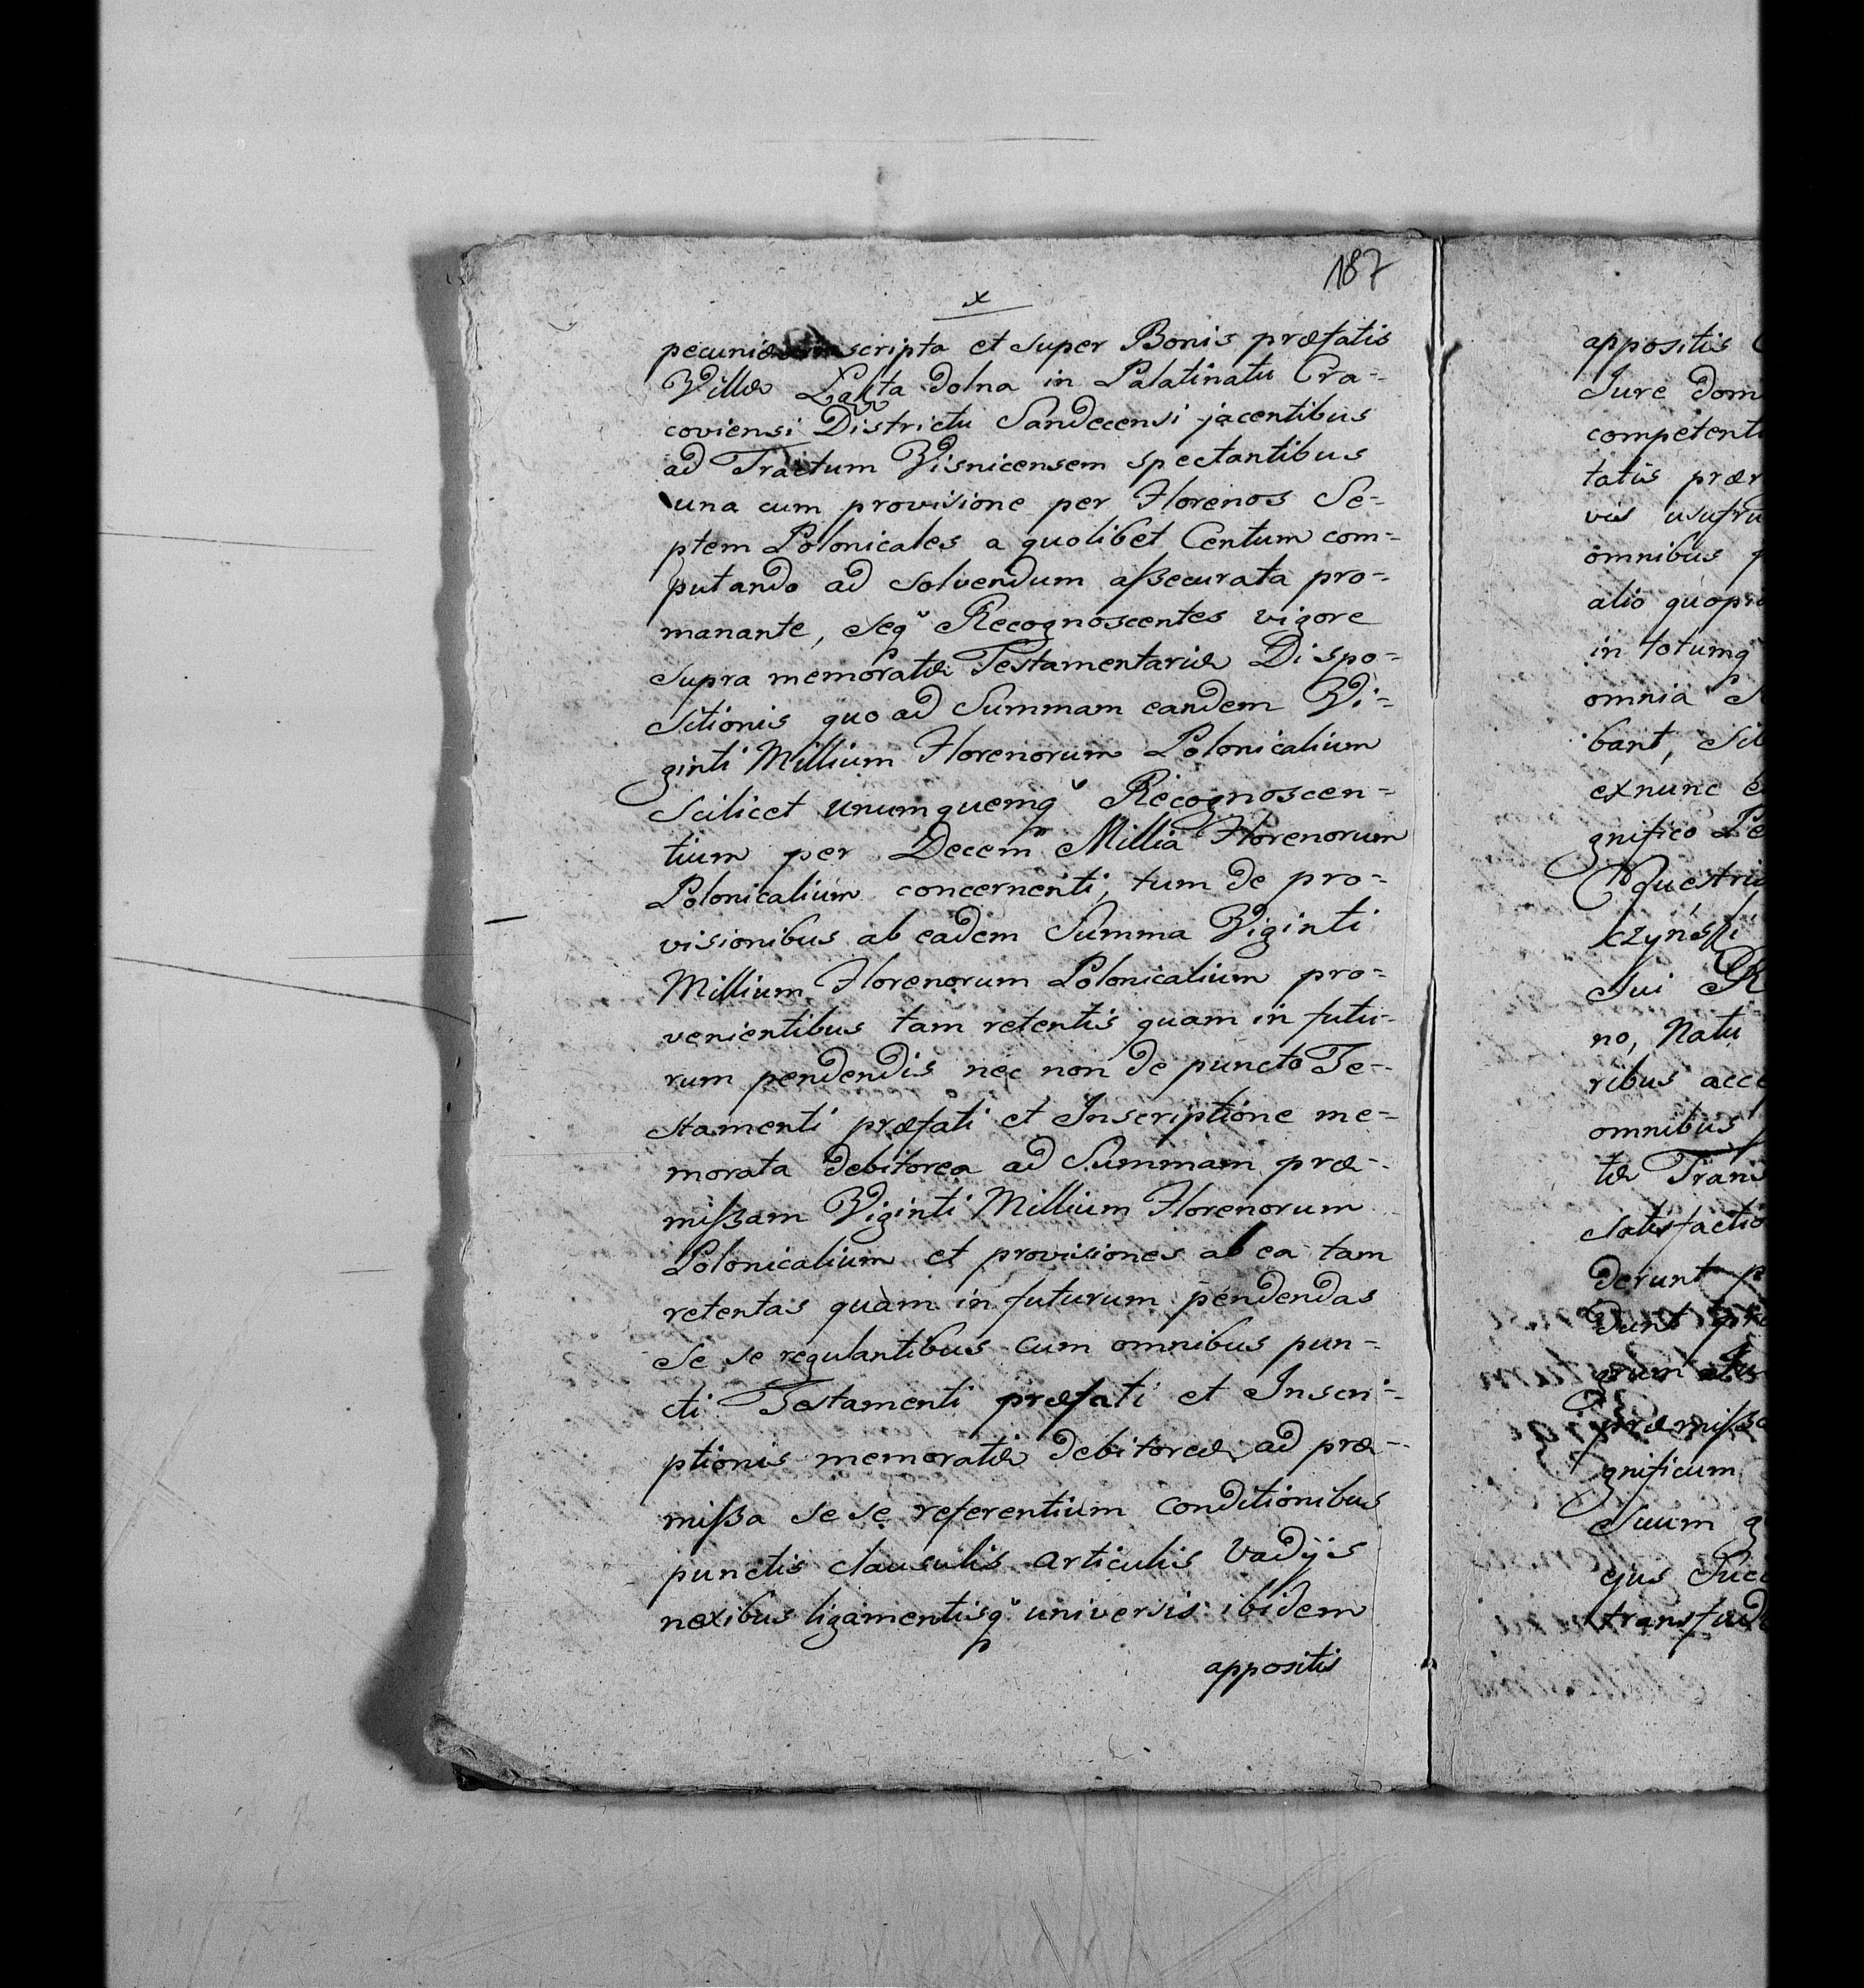 187
x
pecuniæ inscripta et super Bonis præfatis
Villæ Łąkta Dolna in Palatinatu Cra-
coviensi Districtu Sandecensi jacentibus
ad Tractum Visnicensem spectantibus
una cum provisione per Florenos Se-
ptem Polonicales a quolibet Centum com-
putando ad solvendum aßecurata pro-
manante, seq Recognoscentes vigore
supra memoratæ Testamentariæ Dispo-
sitionis quo ad Summam eandem Vi-
ginti Millium Florenorum Polonicalium
scilicet unumquemq Recognoscen-
tium per Decem Millia Florenorum
Polonicalium concernenti, tum de pro-
visionibus ab eadem Summa Viginti
Millium Florenorum Polonicalium pro-
venientibus tam retentis quam in futu-
rum pendendis nec non de puncto Te-
stamenti præfati et Inscriptione me-
morata debitorea ad Summam præ-
mißam Viginti Millium Florenorum
Polonicalium et provisiones ab ea tam
retentas quàm in futurum pendendas
se se regulantibus cum omnibus pun-
cti Testamenti præfati et Inscri-
ptionis memoratæ debitoreæ ad præ-
mißa se se referentium conditionibus
punctis clausulis articulis Vadijs
nexibus ligamentisq universis ibidem
appositis
appositis
Jure dom
competenti
tatis præ
vis usufru
omnibus
alio quopi
in totumq
omnia
bant,
exnunc
gnifico Pe
questri
czyński
Sui
no, Natu
ribus acce
omnibus
tæ Trans
satisfactio
derunt
dunt
præmißa
gnificum
Suum
ejus Succ
transfud